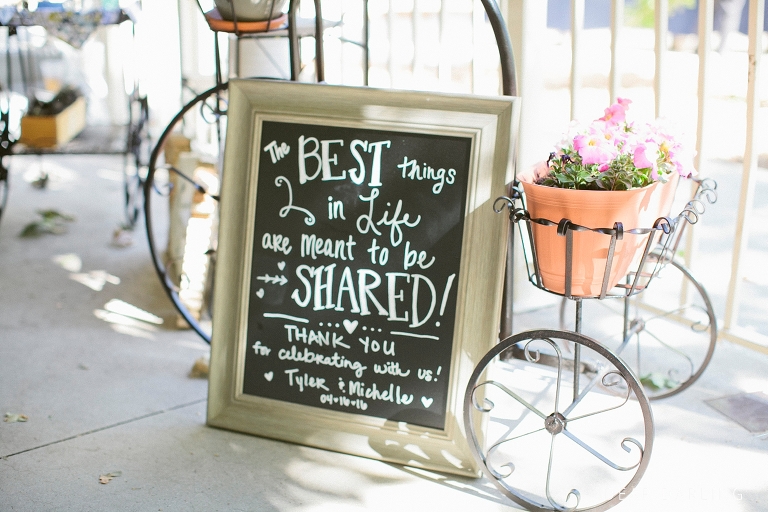 The BEST things
in Life
are meant to be
SHARED!
THANK YOU
for celebrating with us!
Tyler & Michelle
04•16•16